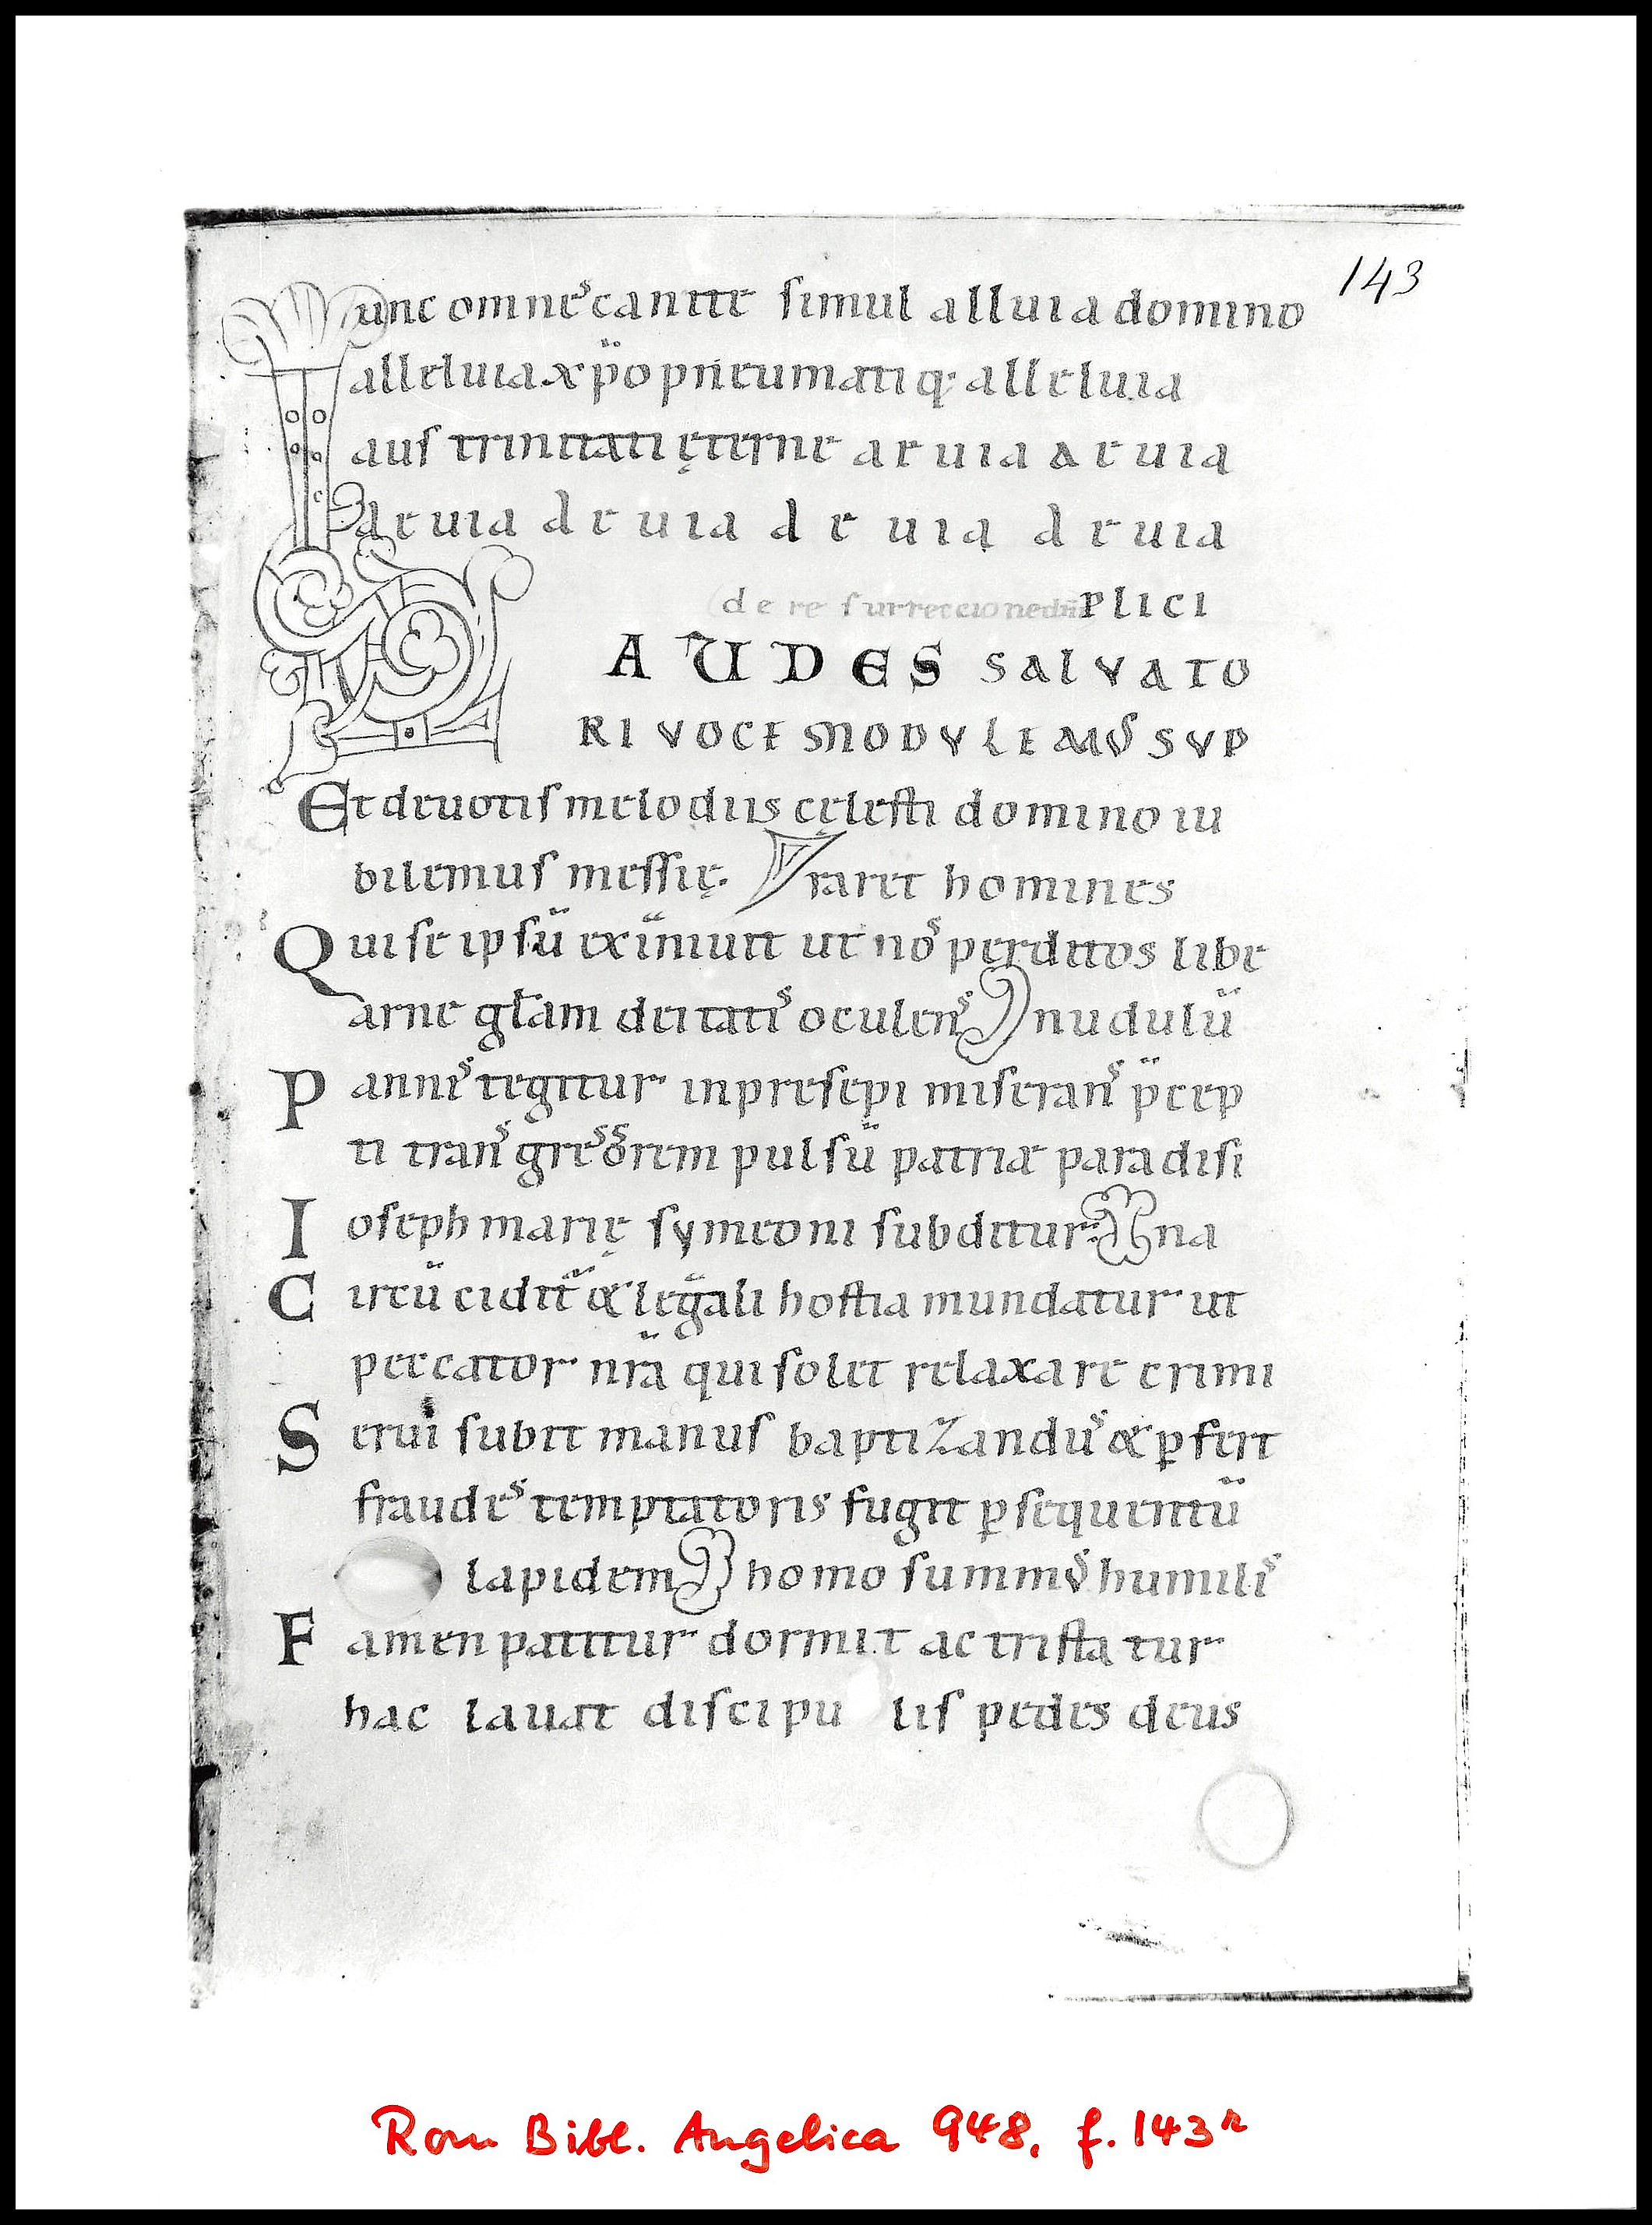 143
Nunc omneˢ canite simul alluia domino
alleluia xp̈o pneumatiq; alleluia
Laus trinitati ęterne aeuia aeuia
aeuia aeuia aeuia aeuia
de resurreccione dn̄i PLICI
LAUDES SALVATO
RI VOCE MODVLEMVˢ SVP
Et deuotis melodiis cęlesti domino iu
bilemus messię. raret homines
Qui se ipsü exinıuit ut noˢ perditos libe
arne gl̄am deitatiˢ oculenˢ nudulü
Panniˢ tegitur in presepi miseranˢ p̈cep
ti tranˢgreˢoˢrem pulsü patria paradisi
Ioseph marię symeoni subditur na
Circücidit̃ & legali hostia mundatur ut
peccator nrä qui solet relaxare crimi
Serui subit manus baptizanduˢ & ꝑfert
fraudeˢ temptatoris fugit ꝑsequentü
lapidem homo summvˢ humiliˢ
Famen patitur dormit ac tristatur
hac lauat discipulis pedes deus
Rom Bibl. Angelica 948, f. 143r